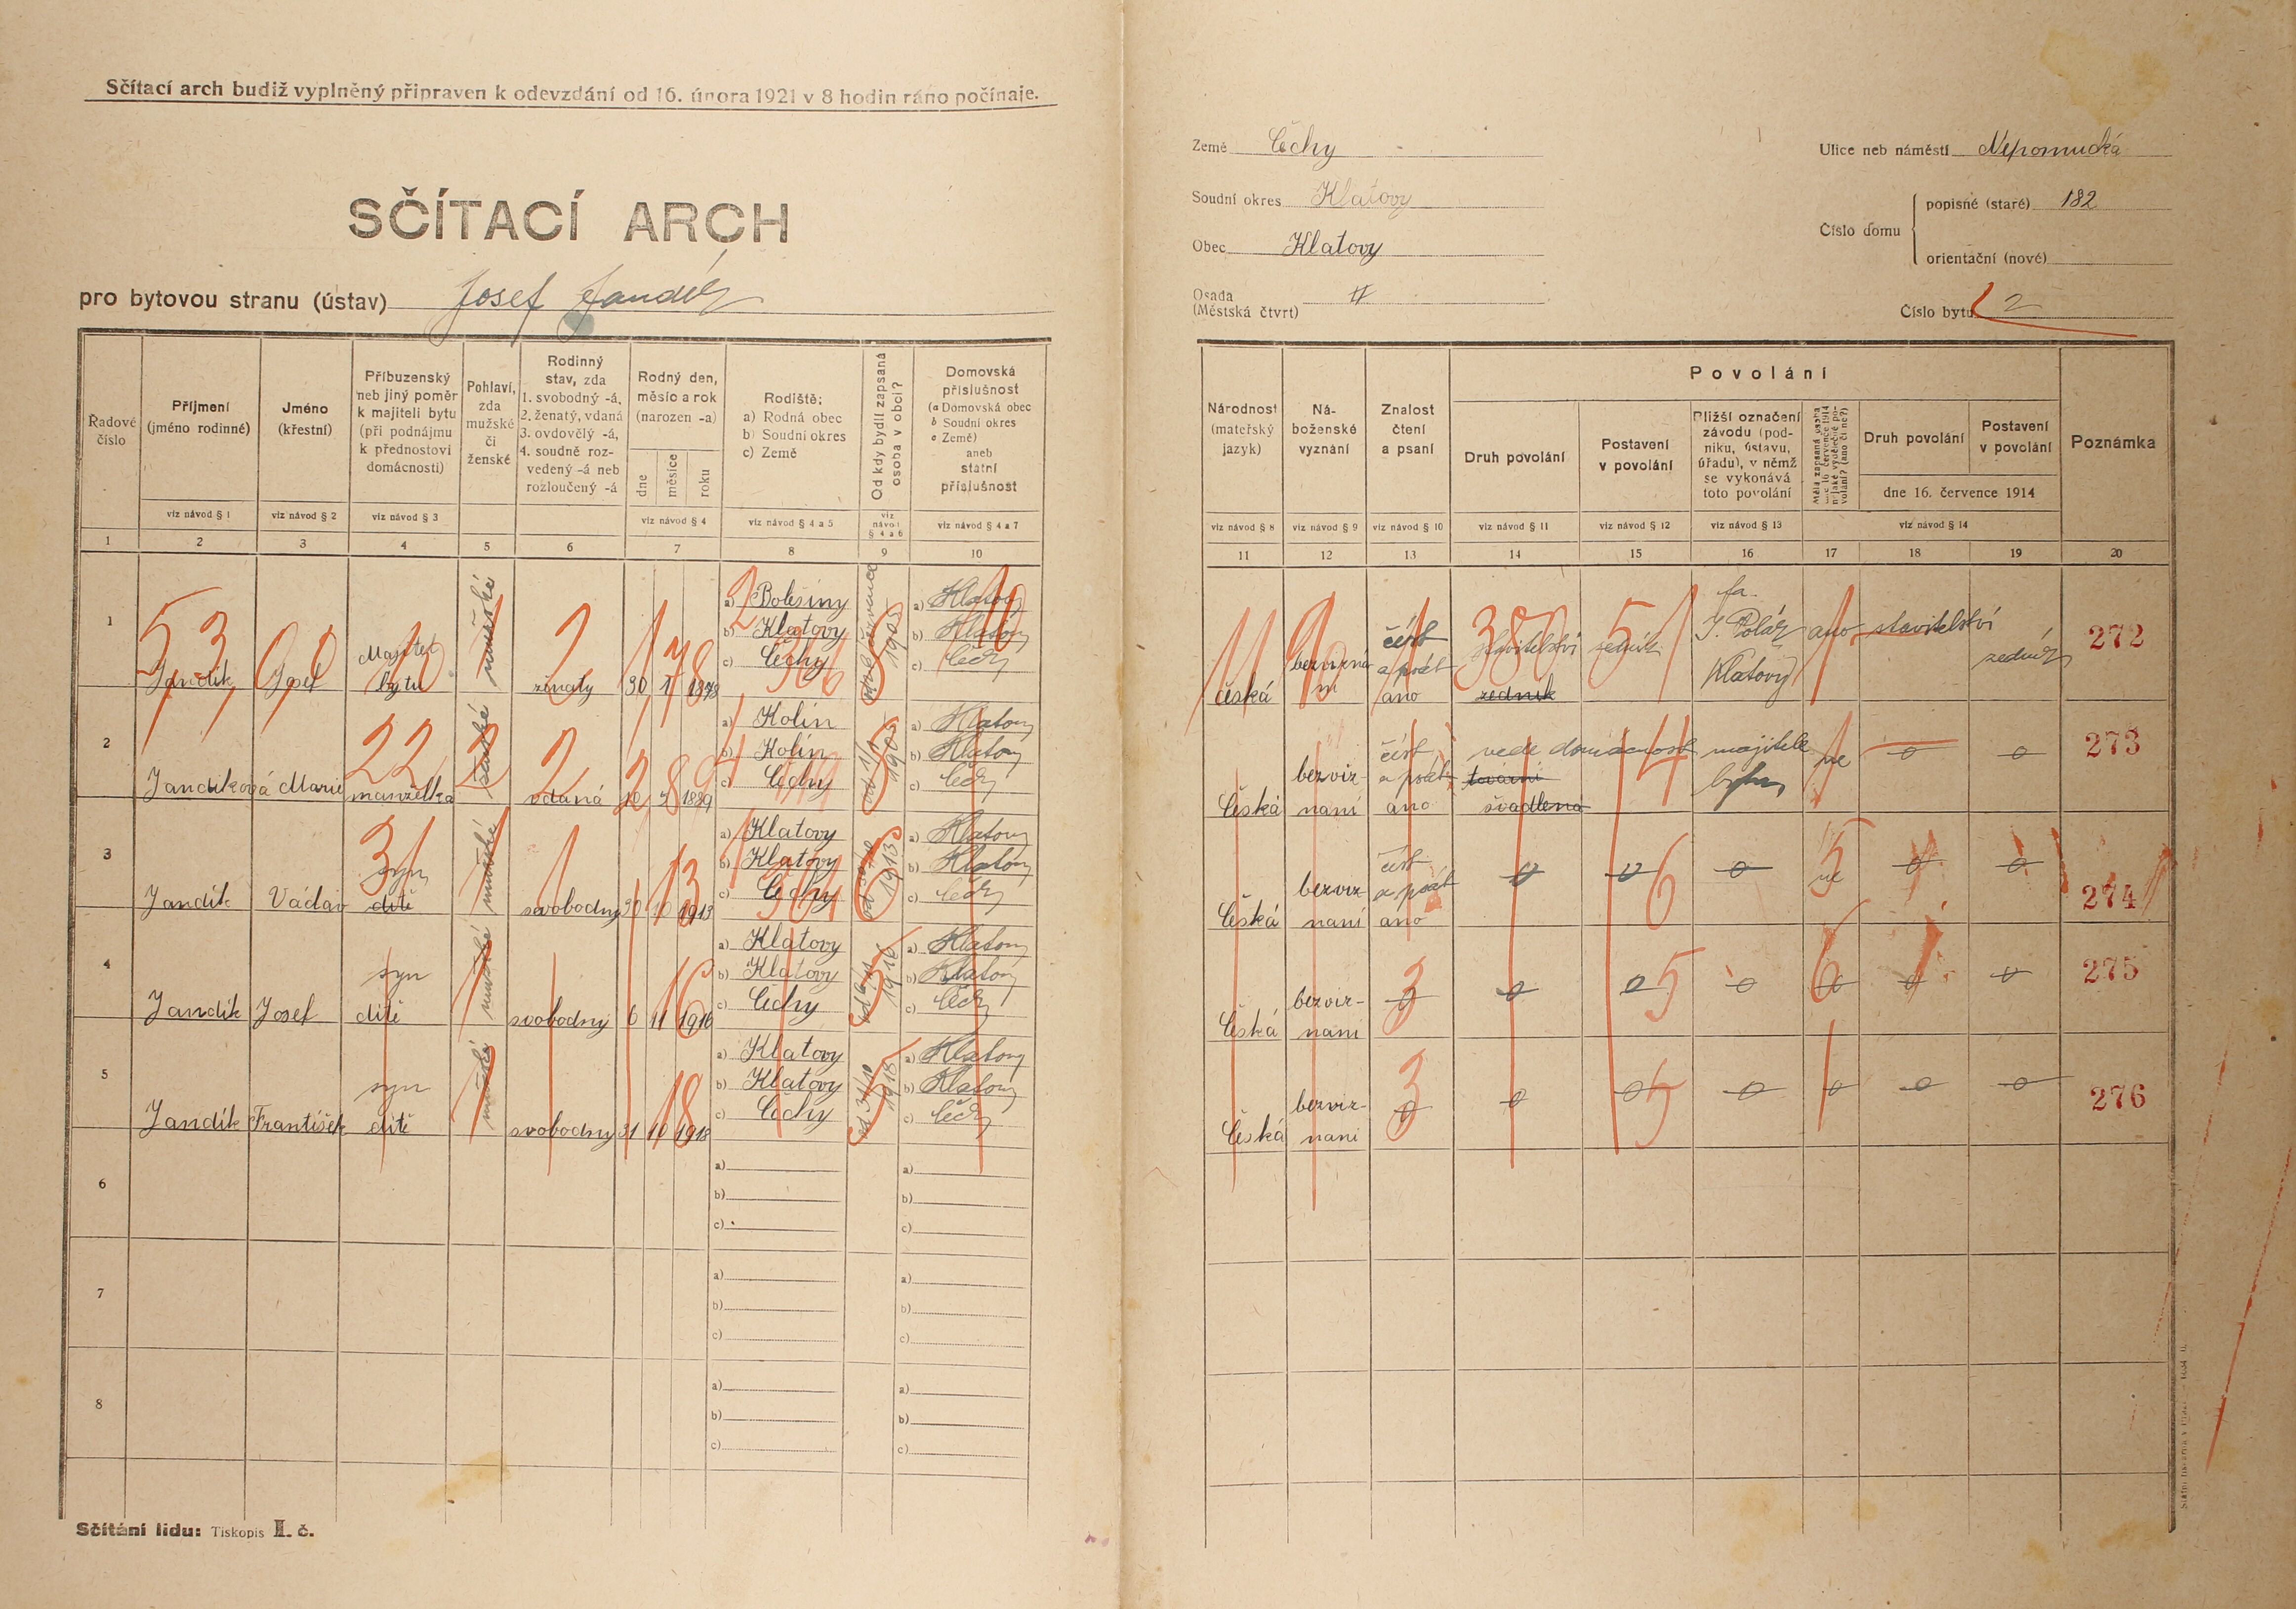 Sčítací arch budiž vyplněný připraven k odevzdání od 16. února 1921 v 8 hodin ráno počínaje.
SČÍTACÍ ARCH
pro bytovou stranu (ústav) Josef Jandík
Země Čechy
Soudní okres Klatovy
Obec Klatovy
Osada (Městská čtvrt) II
Ulice neb náměstí Nepomucká
Číslo domu
popisné (staré) 182
orientační (nové)
Číslo bytu 2
Řadové číslo
Příjmení (jméno rodinné)
Jméno (křestní)
Příbuzenský neb jiný poměr k majiteli bytu (při podnájmu k přednostovi domácnosti)
Pohlaví, zda mužské či ženské
Rodinný stav, zda 1. svobodný -á, 2. ženatý, vdaná 3. ovdovělý -á, 4. soudně rozvedený -á neb rozloučený -á
Rodný den, měsíc a rok (narozen -a)
dne měsíce roku
Rodiště:
a) Rodná obec
b) Soudní okres
c) Země
Od kdy bydlí zapsaná osoba v obci?
Domovská příslušnost
(a Domovská obec
b Soudní okres
c Země)
aneb státní příslušnost
viz návod § 1 viz návod § 2 viz návod § 3 viz návod § 4 viz návod § 4 a 5 viz návod § 4 a 6 viz návod § 4 a 7
1 2 3 4 5 6 7 8 9 10
Národnost (mateřský jazyk)
Náboženské vyznání
Znalost čtení a psaní
Povolání
Druh povolání
Postavení v povolání
Bližší označení závodu (podniku, ústavu, úřadu), v němž se vykonává toto povolání
Měla zapsaná osoba dne 16. července 1914 nějaké výdělečné povolání? (ano či ne?)
Druh povolání
Postavení v povolání
dne 16. července 1914
Poznámka
viz návod § 8 viz návod § 9 viz návod § 10 viz návod § 11 viz návod § 12 viz návod § 13 viz návod § 14
11 12 13 14 15 16 17 18 19 20
1 Jandík Josef Majitel bytu mužské ženatý 30 1878
a) Bolešiny
b) Klatovy
c) Čechy
1905
a) Klatovy
b) Klatovy
c) Čechy
česká ano stavitelství zedník
zedník
fa.
Klatovy
ano stavitelství zedník 272
2 Jandíková Marie manželka ženské vdaná 1889
a) Kolín
b) Kolín
c) Čechy
1905
a) Klatovy
b) Klatovy
c) Čechy
Česká bezvyznaní číst a psát ano vede domácnost
tovární
švadlena
majitele bytu
ne 0 0 273
3 Jandík Václav syn
dítě
mužské svobodný 30 10 1913
a) Klatovy
b) Klatovy
c) Čechy
1913
a) Klatovy
b) Klatovy
c) Čechy
Česká bezvyznaní číst a psát ano 0 0 0 ne 0 0 274
4 Jandík Josef syn
dítě
mužské svobodný 6 11 1916
a) Klatovy
b) Klatovy
c) Čechy
od 6/11 1916
a) Klatovy
b) Klatovy
c) Čechy
Česká bezvyznaní 0 0 0 0 0 0 0 275
5 Jandík František syn
dítě
mužské svobodny 31 10 1918
a) Klatovy
b) Klatovy
c) Čechy
od 31/10 1918
a) Klatovy
b) Klatovy
c) Čechy
Česká bezvyznaní 0 0 0 0 0 0 0 276
6
a)
b)
c)
a)
b)
c)
7
a)
b)
c)
a)
b)
c)
8
a)
b)
c)
a)
b)
c)
Sčítání lidu: Tiskopis I. č.